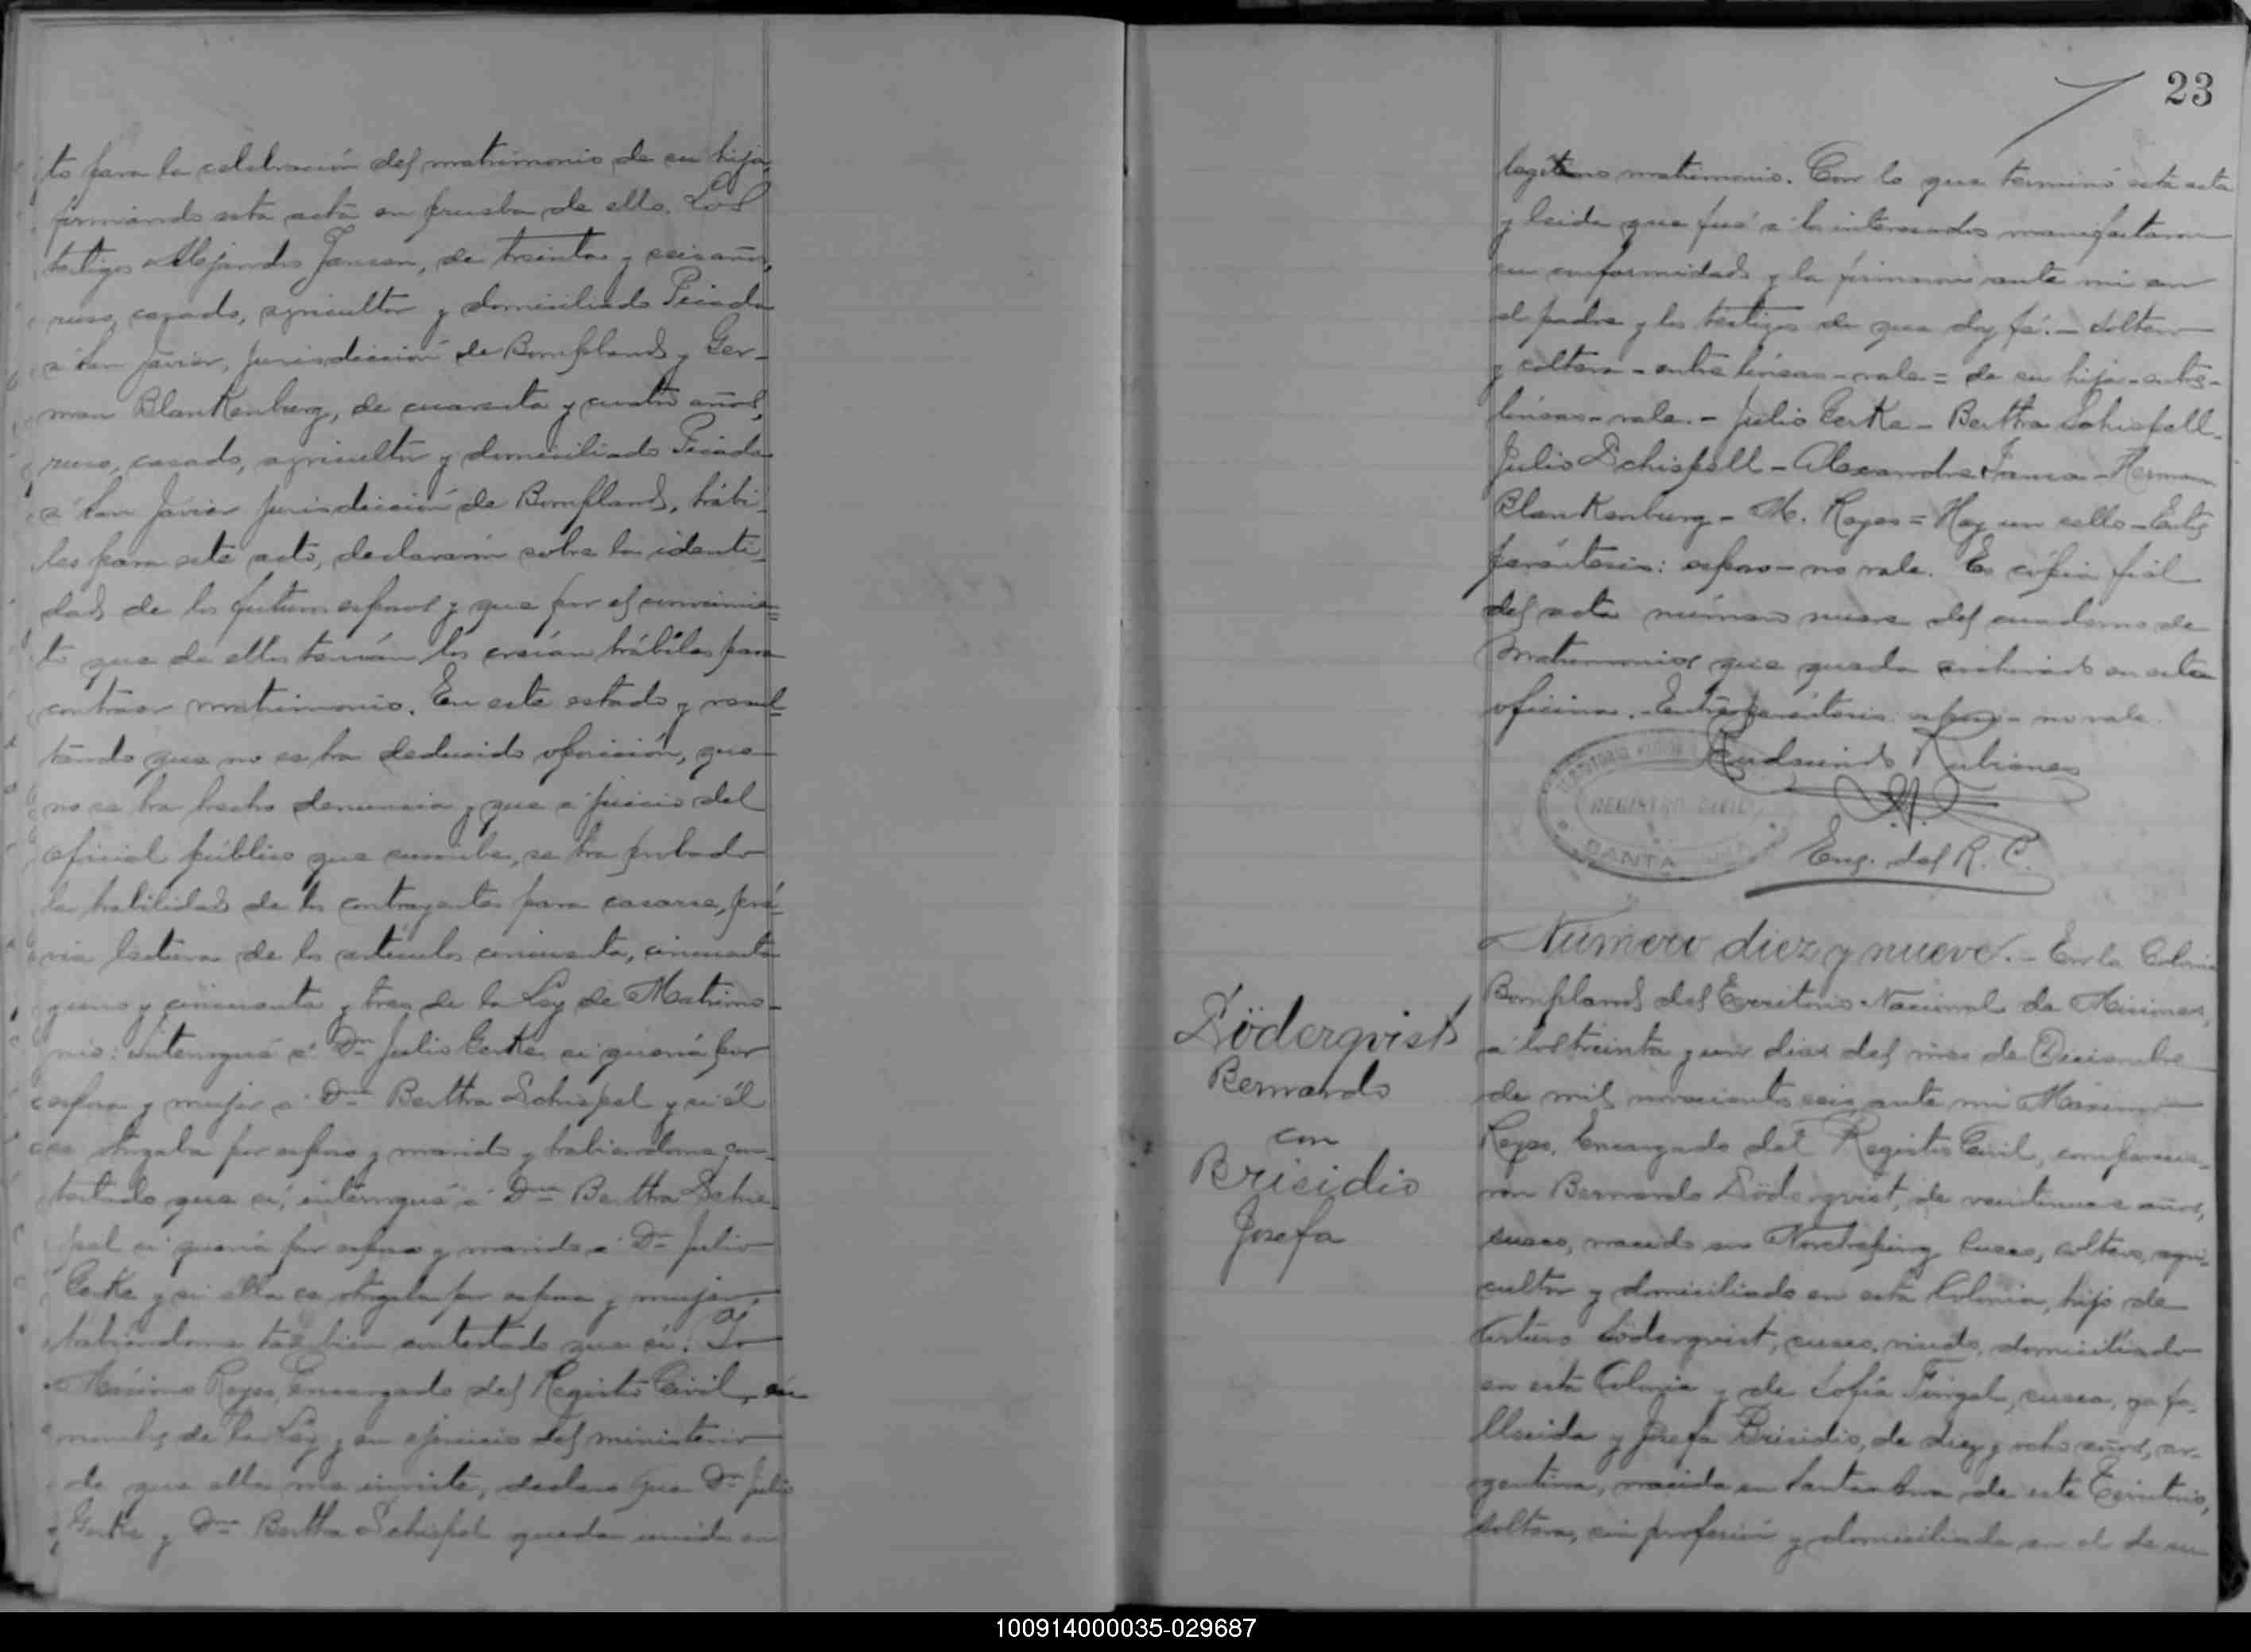 to para la celebración del matrimonio de su hija,
firmando esta acta en prueba de ello. Los
testigos Alejandro Jansen, de treinta y seis años,
ruso, casado, agricultor y domiciliado Picada
a San Javier, jurisdicción de Bompland y Ger-
man Blankenburg, de cuarenta y cuatro años,
ruso, casado, agricultor y domiciliado Picada
a San Javier jurisdicción de Bompland, hábi-
les para este acto, declararon sobre la identi-
dad de los futuros esposos y que por el conocimien=
to que de ellos tenían los creían hábiles para
contraer matrimonio. En este estado y resul=
tando que no se ha deducido oposición, que
no se ha hecho denuncia y que a juicio del
oficial público que suscribe, se ha probado
la habilidad de los contrayentes para casarse, pré-
via lectura de los artículos cincuenta, cincuenta
y uno y cincuenta y tres de la Ley de Matrimo-
nio: interrogué a Dn Julio Gerke si quería por
esposa y mujer a Dña Bertha Schiepel y si él
se otorgaba por esposo y marido y habiendome con-
testado que sí, interrogué a Dña Bertha Schie-
pel si quería por esposo y marido a Dn Julio
Gerke y si ella se otorgaba por esposa y mujer,
habiéndome también contestado que sí. Yo
Máximo Reyes, Encargado del Registro Civil, en
nombre de la Ley y en ejercicio del ministerio
de que ella me inviste, declaro que Dn Julio
Gerke y Dña Bertha Schiepel quedan unidos en
23
legítimo matrimonio. Con lo que terminó esta acta
y leida que fué a los interesados manifestaron
su conformidad y la firmaron ante mi con
el padre y los testigos de que doy fé. - soltero
y soltera - entre líneas - vale = de su hija - entre-
líneas - vale. - Julio Gerke - Bertha Schiepell -
Julio Schiepell - Alexandre - Herman
Blankenburg - M. Reyes = Hay un sello - Entre
paréntesis: esposo - no vale. Es cópia fiel
del acta número nueve del cuaderno de
Matrimonios que queda archivado en esta
oficina. - Entre paréntesis: - no vale.
Rudecindo Rubiones
REGISTRO CIVIL
SANTA ANA
Enc. del R. C.
Número diez y nueve. - En la Colonia
Bompland del Territorio Nacional de Misiones,
a los treinta y un dias del mes de Diciembre
de mil novecientos seis, ante mi Máximo
Reyes, Encargado del Registro Civil, comparecie-
ron Bernardo Söderqvist, de veintinueve años,
sueco, nacido en Norrkoping Suecia, soltero, agri-
cultor y domiciliado en esta Colonia, hijo de
Arturo Söderqvist, sueco, viudo, domiciliado
en esta Colonia y de Sofía Tingal, sueca, ya fa-
llecida y Josefa Brisidio, de diez y ocho años, ar-
gentina, nacida en Santa Ana de este Territorio,
soltera, sin profesión y domiciliada en el de su
Söderqvist
Bernardo
con
Brisidio
Josefa
100914000035-029687